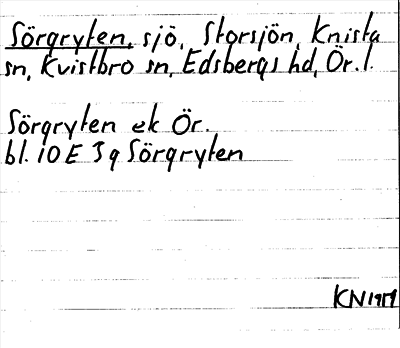 Sörgryten, sjö, Storsjön, Knista
sn, Kvistbro sn, Edsbergs hd, Ör. l.
Sörgryten ek Ör.
bl. 10 E 3 g Sörgryten